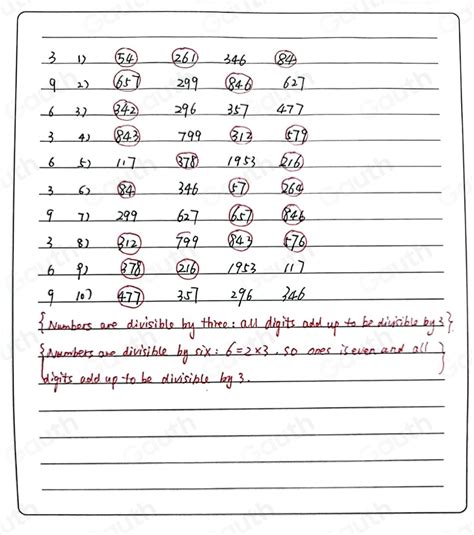 3 1) 54 261 346 84
9 2) 657 299 846 627
6 3) 342 296 357 477
3 4) 843 799 312 579
6 5) 117 378 1953 216
3 6) 84 346 57 264
9 7) 299 627 657 846
3 8) 312 799 843 576
6 9) 378 216 1953 117
9 10) 477 357 296 346
{Numbers are divisible by three: all digits add up to be divisible by 3}.
{Numbers are divisible by six: 6=2×3, so ones is even and all
digits add up to be divisible by 3.}